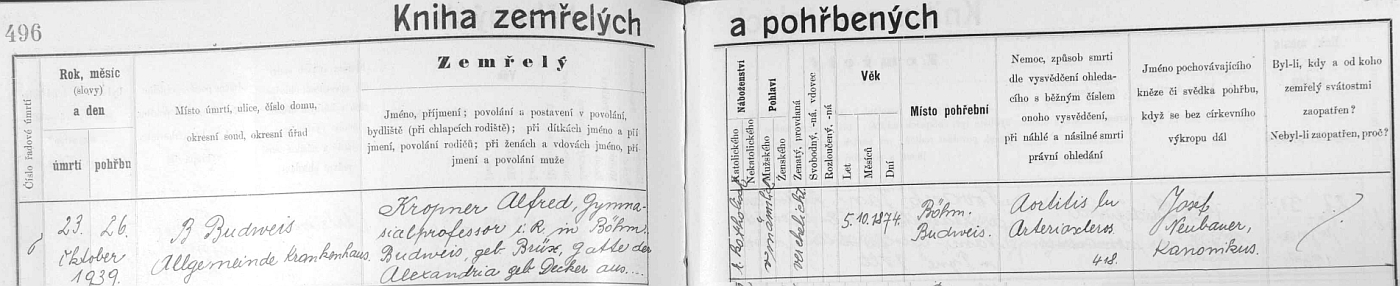 496
Kniha zemřelých a pohřbených
Číslo řadové úmrtí
Rok, měsíc
(slovy)
a den
úmrtí pohřbu
Místo úmrtí, ulice, číslo domu,
okresní soud, okresní úřad
Zemřelý
Jméno, příjmení; povolání a postavení v povolání,
bydliště (při chlapech rodiště); při dítkách jméno a pří
jmení, povolání rodičů; při ženách a vdovách jméno, pří
jmení a povolání muže
Náboženství
Katolického
Nekatolického
Pohlaví
Mužského
Ženského
Ženatý, provdaná
Svobodný, -ná, vdovec
Rozloučený, -ná
Věk
Let
Měsíců
Dní
Místo pohřební
Nemoc, způsob smrti
dle vysvědčení ohleda-
cího s běžným číslem
onoho vysvědčení,
při náhlé a násilné smrti
právní ohledání
Jméno pochovávajícího
kněze či svědka pohřbu,
když se bez církevního
výkropu dál
Byl-li, kdy a od koho
zemřelý svátostmi
zaopatřen?
Nebyl-li zaopatřen, proč?
23. 26.
Oktober
1939.
B Budweis
Allgemeinde Krankenhaus.
Kropner Alfred, Gymna-
sialprofessor i. R. in Böhm.
Budweis, geb. Brüx, Gatte der
Alexandria geb Decker aus...
r. Katholisch
männlich
verehelicht
5. 10. 1874.
Böhm.
Budweis.
Aortitis lu
Arterioscleros.
418.
Josef
Neubauer,
Kanonikus.